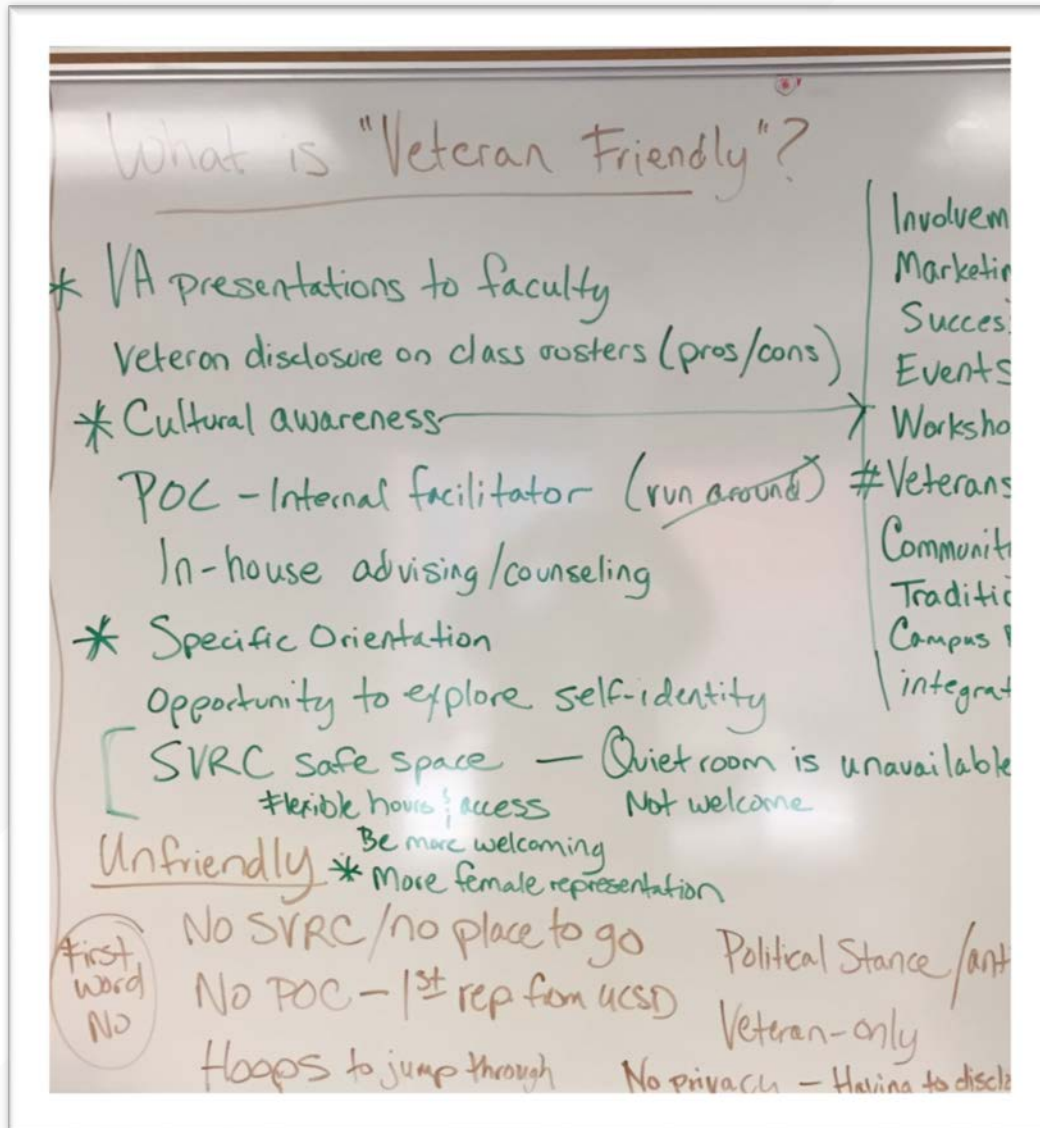 What is "Veteran Friendly"?
* VA presentations to faculty
Veteran disclosure on class rosters (pros/cons)
* Cultural awareness
POC - Internal facilitator (run around)
In-house advising/counseling
* Specific Orientation
Opportunity to explore self-identity
SVRC safe space — Quiet room is unavailable
Flexible hours & access Not welcome
Be more welcoming
* More female representation
Involvem
Marketin
Succes
Events
Worksho
#Veterans
Communit
Traditio
Campus
integrat
Unfriendly
First
word
No
No SVRC/no place to go
No POC - 1st rep from UCSD
Hoops to jump through
Political Stance/ant
Veteran-only
No privacy - Having to discl